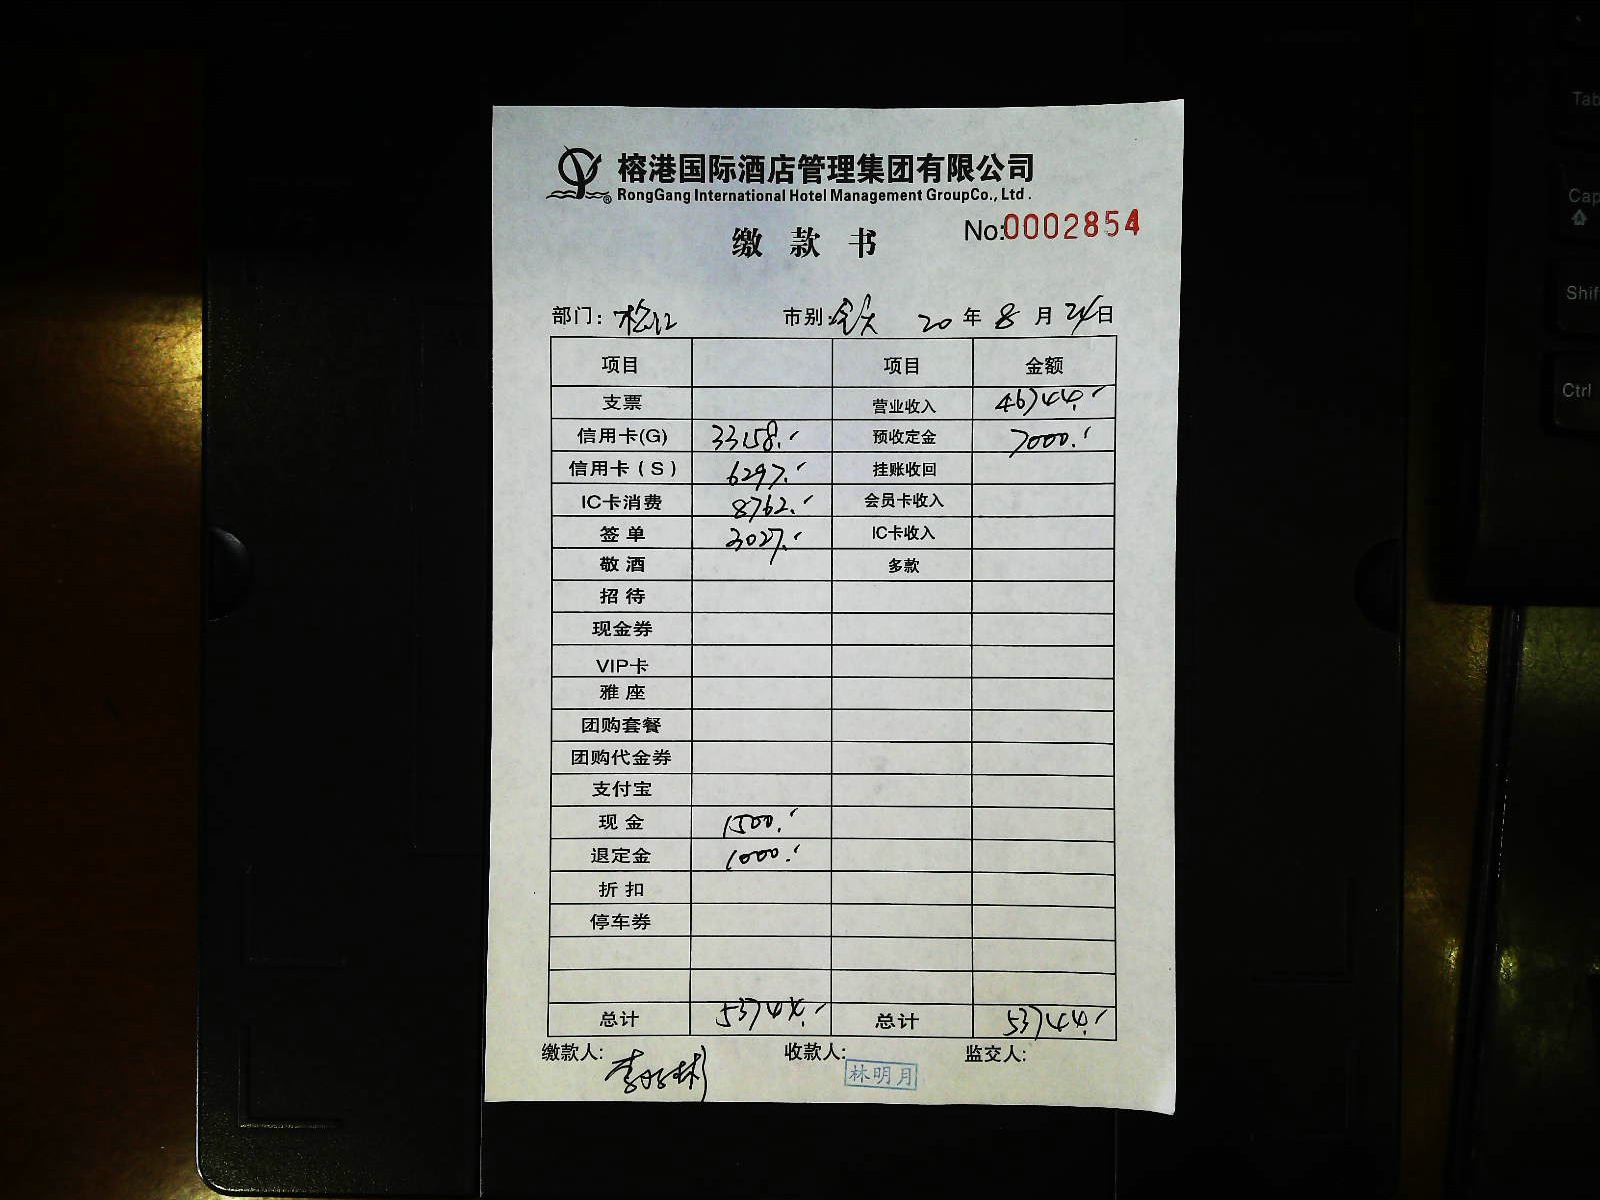 榕港国际酒店管理集团有限公司
RongGang International Hotel Management GroupCo., Ltd.
缴款书 No:0002854
部门：松江 市别：全天 20年8月24日
项目 项目 金额
支票 营业收入 46744.-
信用卡(G) 33158.- 预收定金 7000.-
信用卡（S） 6297.- 挂账收回
IC卡消费 8762.- 会员卡收入
签单 3027.- IC卡收入
敬酒 多款
招待
现金券
VIP卡
雅座
团购套餐
团购代金券
支付宝
现金 1500.-
退定金 1000.-
折扣
停车券
总计 53744.- 总计 53744.-
缴款人: 收款人: 林明月 监交人:
Tab
Cap
Shif
Ctrl